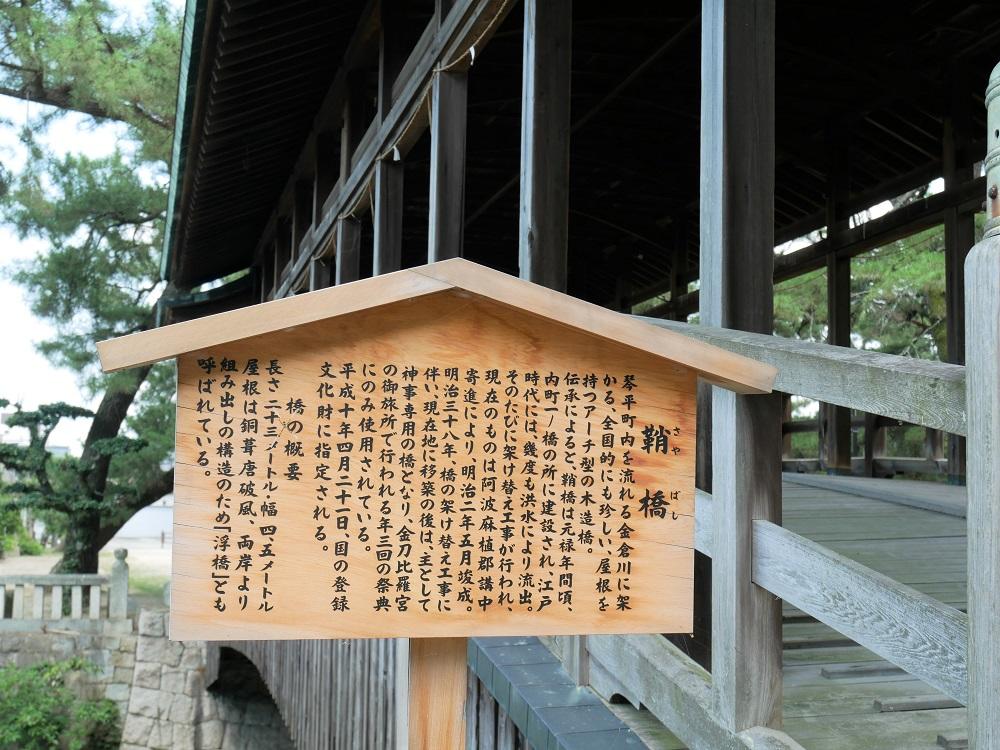 鞘橋
さやばし
琴平町内を流れる金倉川に架
かる、全国的にも珍しい、屋根を
持つアーチ型の木造橋。
伝承によると、鞘橋は元禄年間頃、
内町一ノ橋の所に建設され、江戸
時代には、幾度も洪水により流出。
そのたびに架け替え工事が行われ、
現在のものは阿波麻植郡講中
寄進により、明治二年五月竣成。
明治三十八年、橋の架け替え工事に
伴い、現在地に移築の後は、主として
神事専用の橋となり、金刀比羅宮
の御旅所で行われる年三回の祭典
にのみ使用されている。
平成十年四月二十一日、国の登録
文化財に指定される。
橋の概要
長さ二十三メートル・幅四・五メートル
屋根は銅葺唐破風、両岸より
組み出しの構造のため「浮橋」とも
呼ばれている。